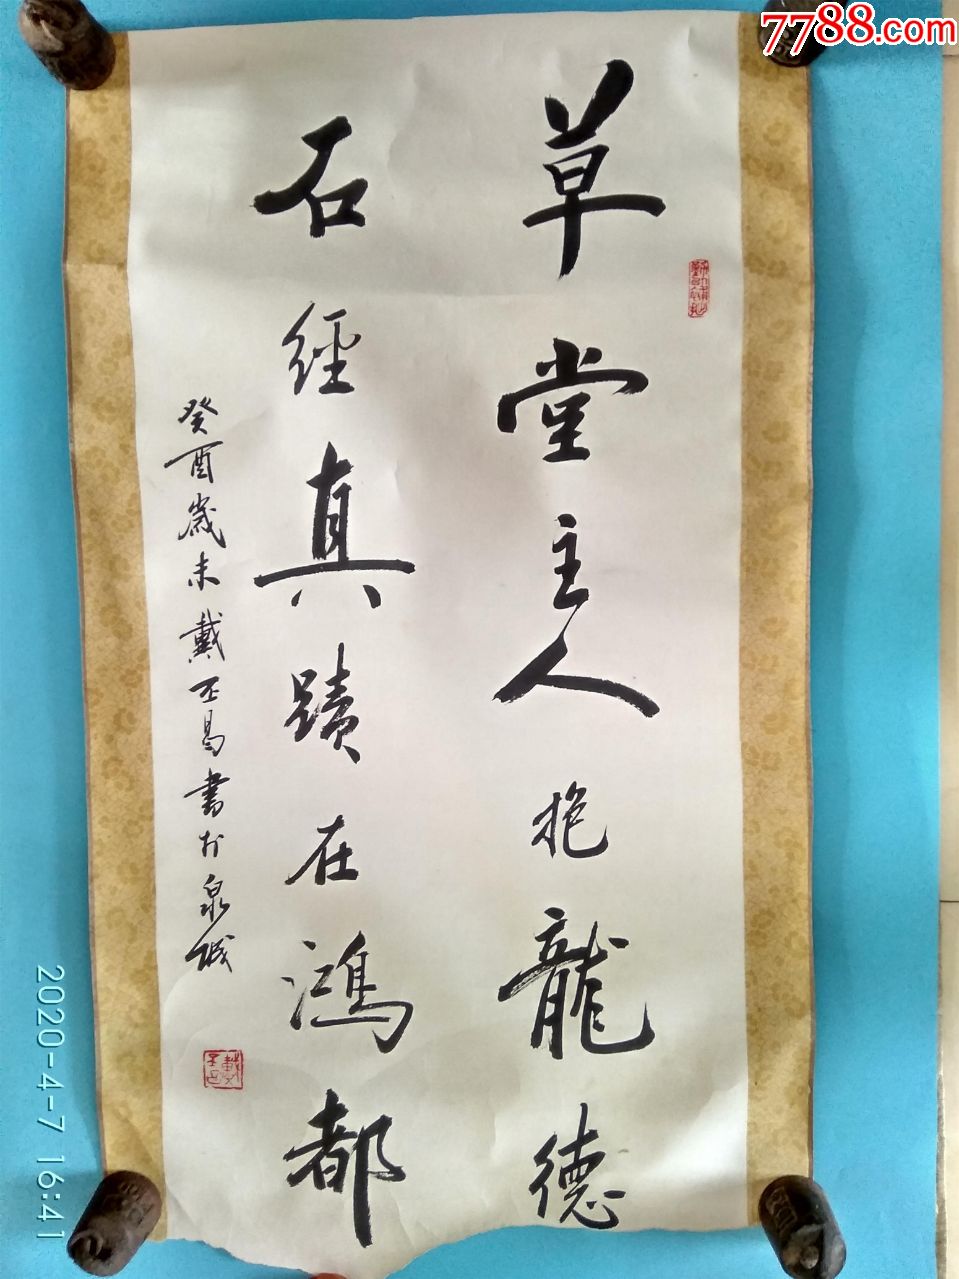 7788.com
草堂主人抱龍德
石經真蹟在鴻都
癸酉歲末戴丕昌書於泉城
2020-4-7 16:41